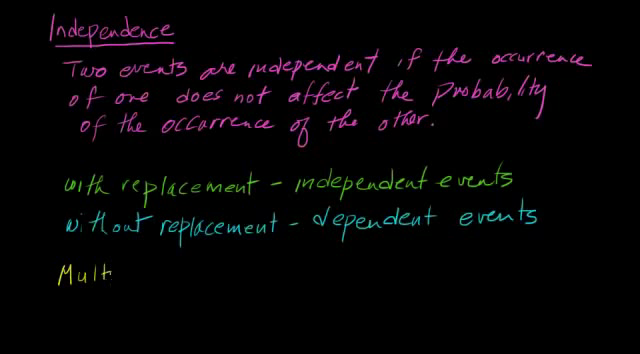 Independence
Two events are independent if the occurrence
of one does not affect the Probability
of the occurrence of the other.
with replacement - independent events
without replacement - dependent events
Mult